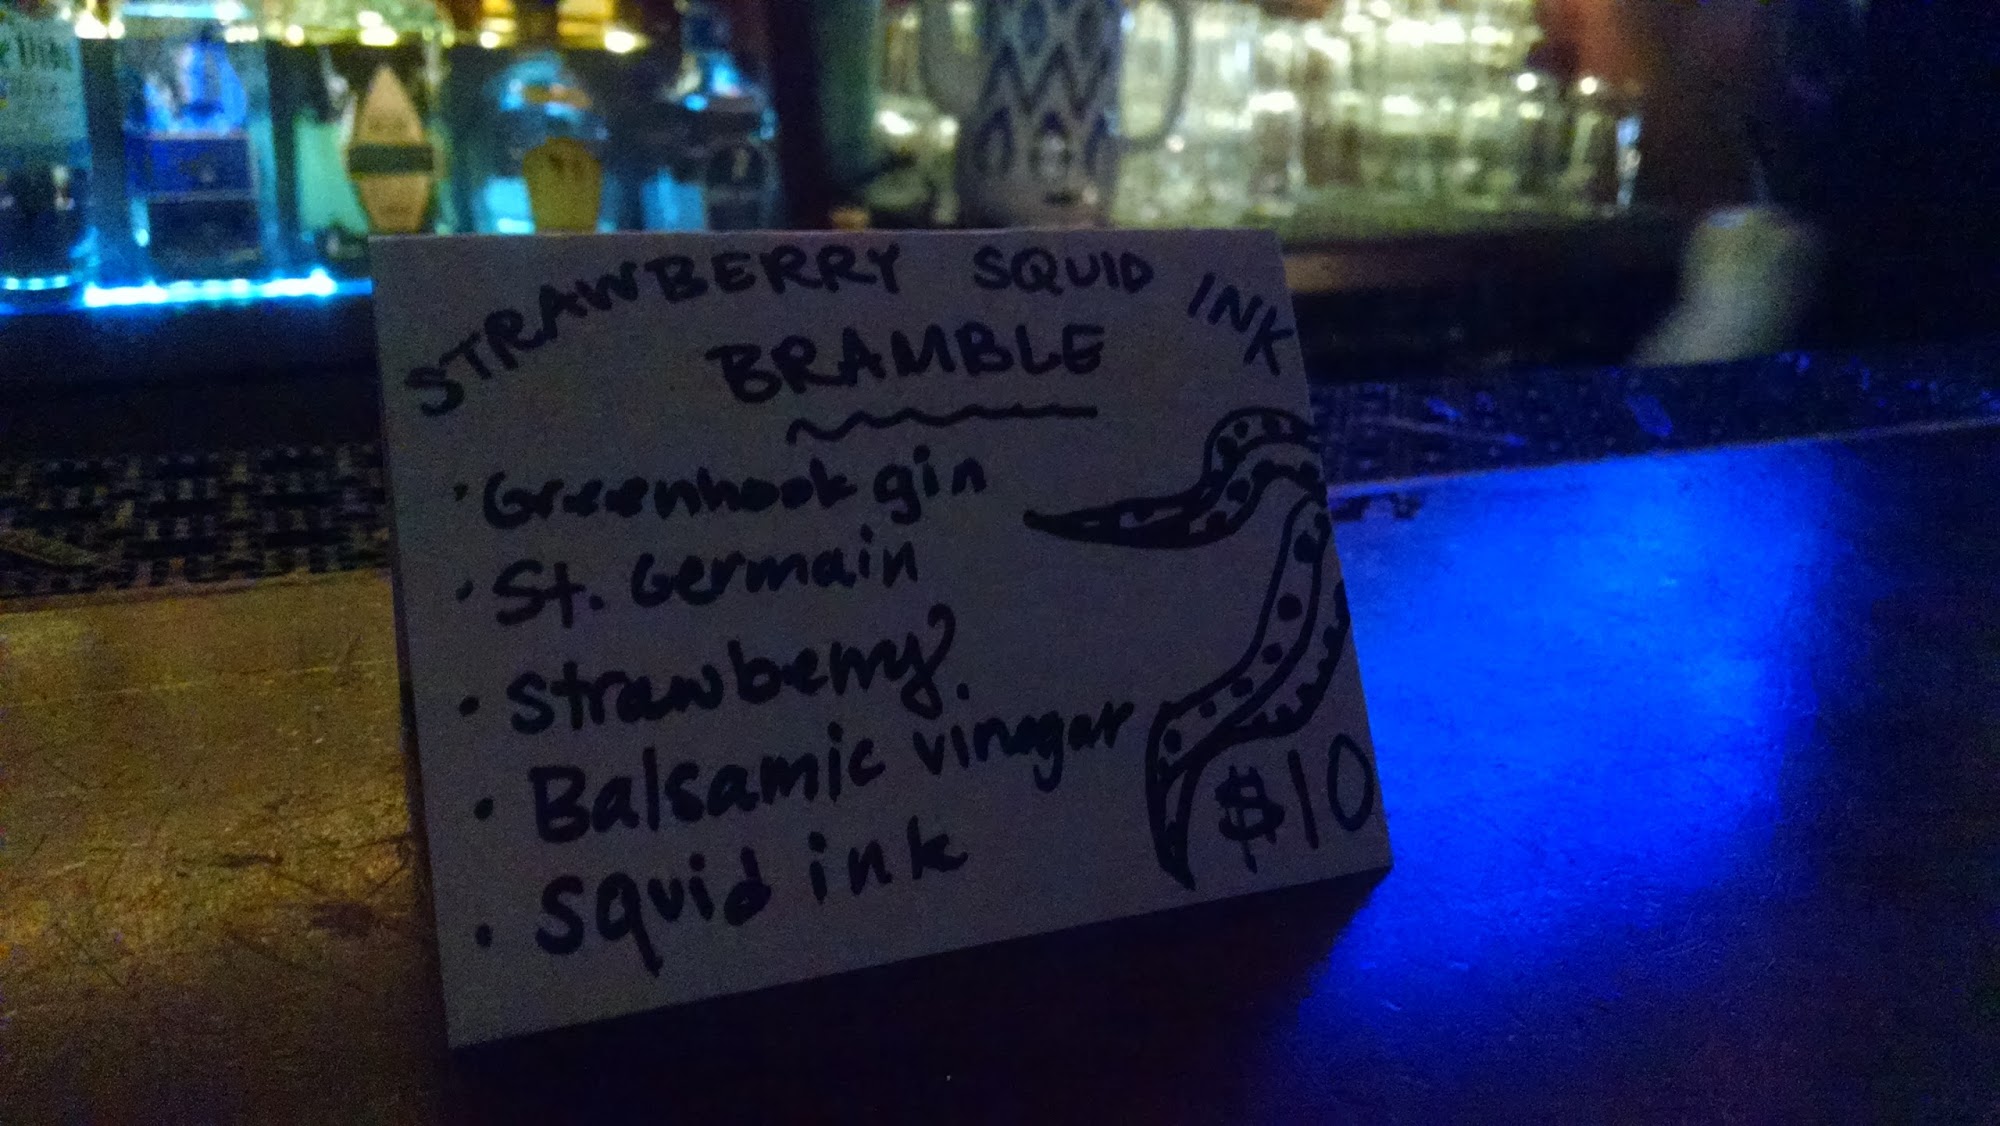 STRAWBERRY SQUID INK
BRAMBLE
• Greenhook gin
• St. Germain
• Strawberry
• Balsamic vinegar
• squid ink
$10